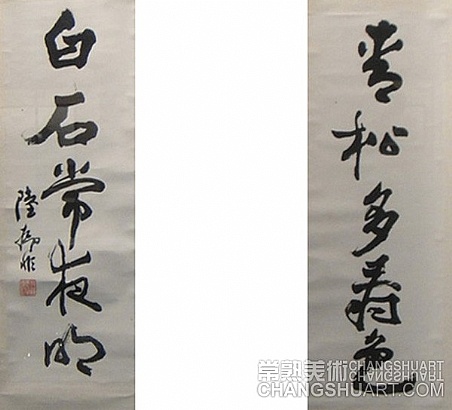 青松多壽色
白石常夜明
陸抑非
常熟美術 CHANGSHUART
CHANGSHUART
CHANGSHUART.COM